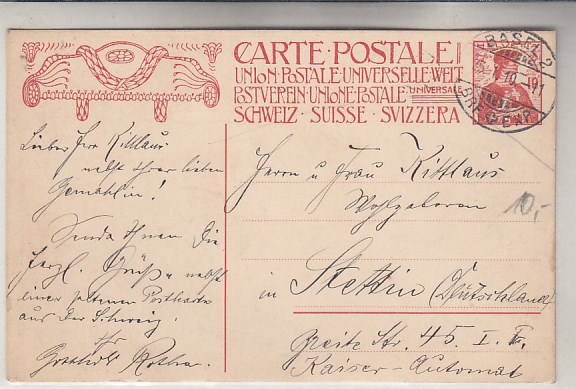 CARTE·POSTALE
UNION·POSTALE·UNIVERSELLE·WELT
POSTVEREIN·UNIONE·POSTALE UNIVERSALE
SCHWEIZ · SUISSE · SVIZZERA
BASEL 2
BRF. EXP.
Lieber Herr Kittlaus
nebst Ihrer lieben
Gemahlin!
Sende Ihnen die
herzl. Grüße nebst
einer seltenen Postkarte
aus der Schweiz.
Ihr
Gotthold
Herrn u Frau Kittlaus
Wohlgeboren
10,-
in Stettin (Deutschland)
Str. 45. I. E.
Kaiser-Automat